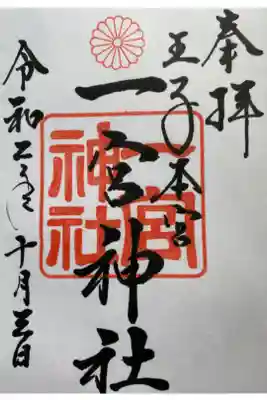 奉拝
王子本宮
一宮神社
令和二年十月三日
一宮神社